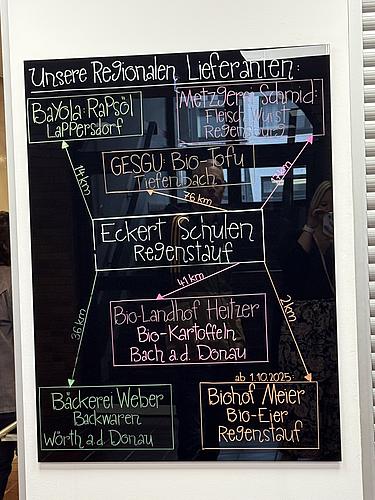 Unsere Regionalen Lieferanten:
Bayola: Rapsöl
Lappersdorf
Metzgerei Schmid:
Fleisch, Wurst
Regenstauf
14 km
GESGU: Bio-Tofu
Tiefenbach
76 km
km
Eckert Schulen
Regenstauf
41 km
36 km
2 km
Bio-Landhof Heitzer
Bio-Kartoffeln
Bach a.d. Donau
ab 1.10.2025:
Bäckerei Weber
Backwaren
Wörth a.d. Donau
Biohof Meier
Bio-Eier
Regenstauf